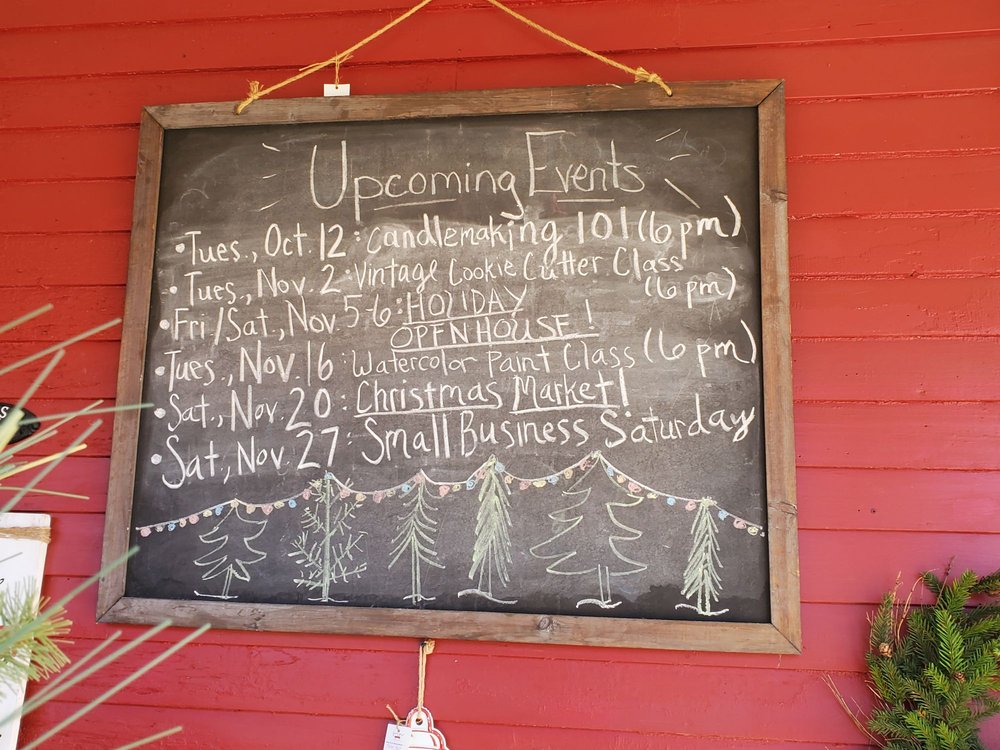 Upcoming Events
• Tues., Oct. 12: Candlemaking 101 (6 pm)
• Tues., Nov. 2: Vintage Cookie Cutter Class (6 pm)
• Fri/Sat., Nov. 5-6: HOLIDAY
OPEN HOUSE!
• Tues., Nov. 16: Watercolor Paint Class (6 pm)
• Sat., Nov. 20: Christmas Market!
• Sat., Nov. 27: Small Business Saturday